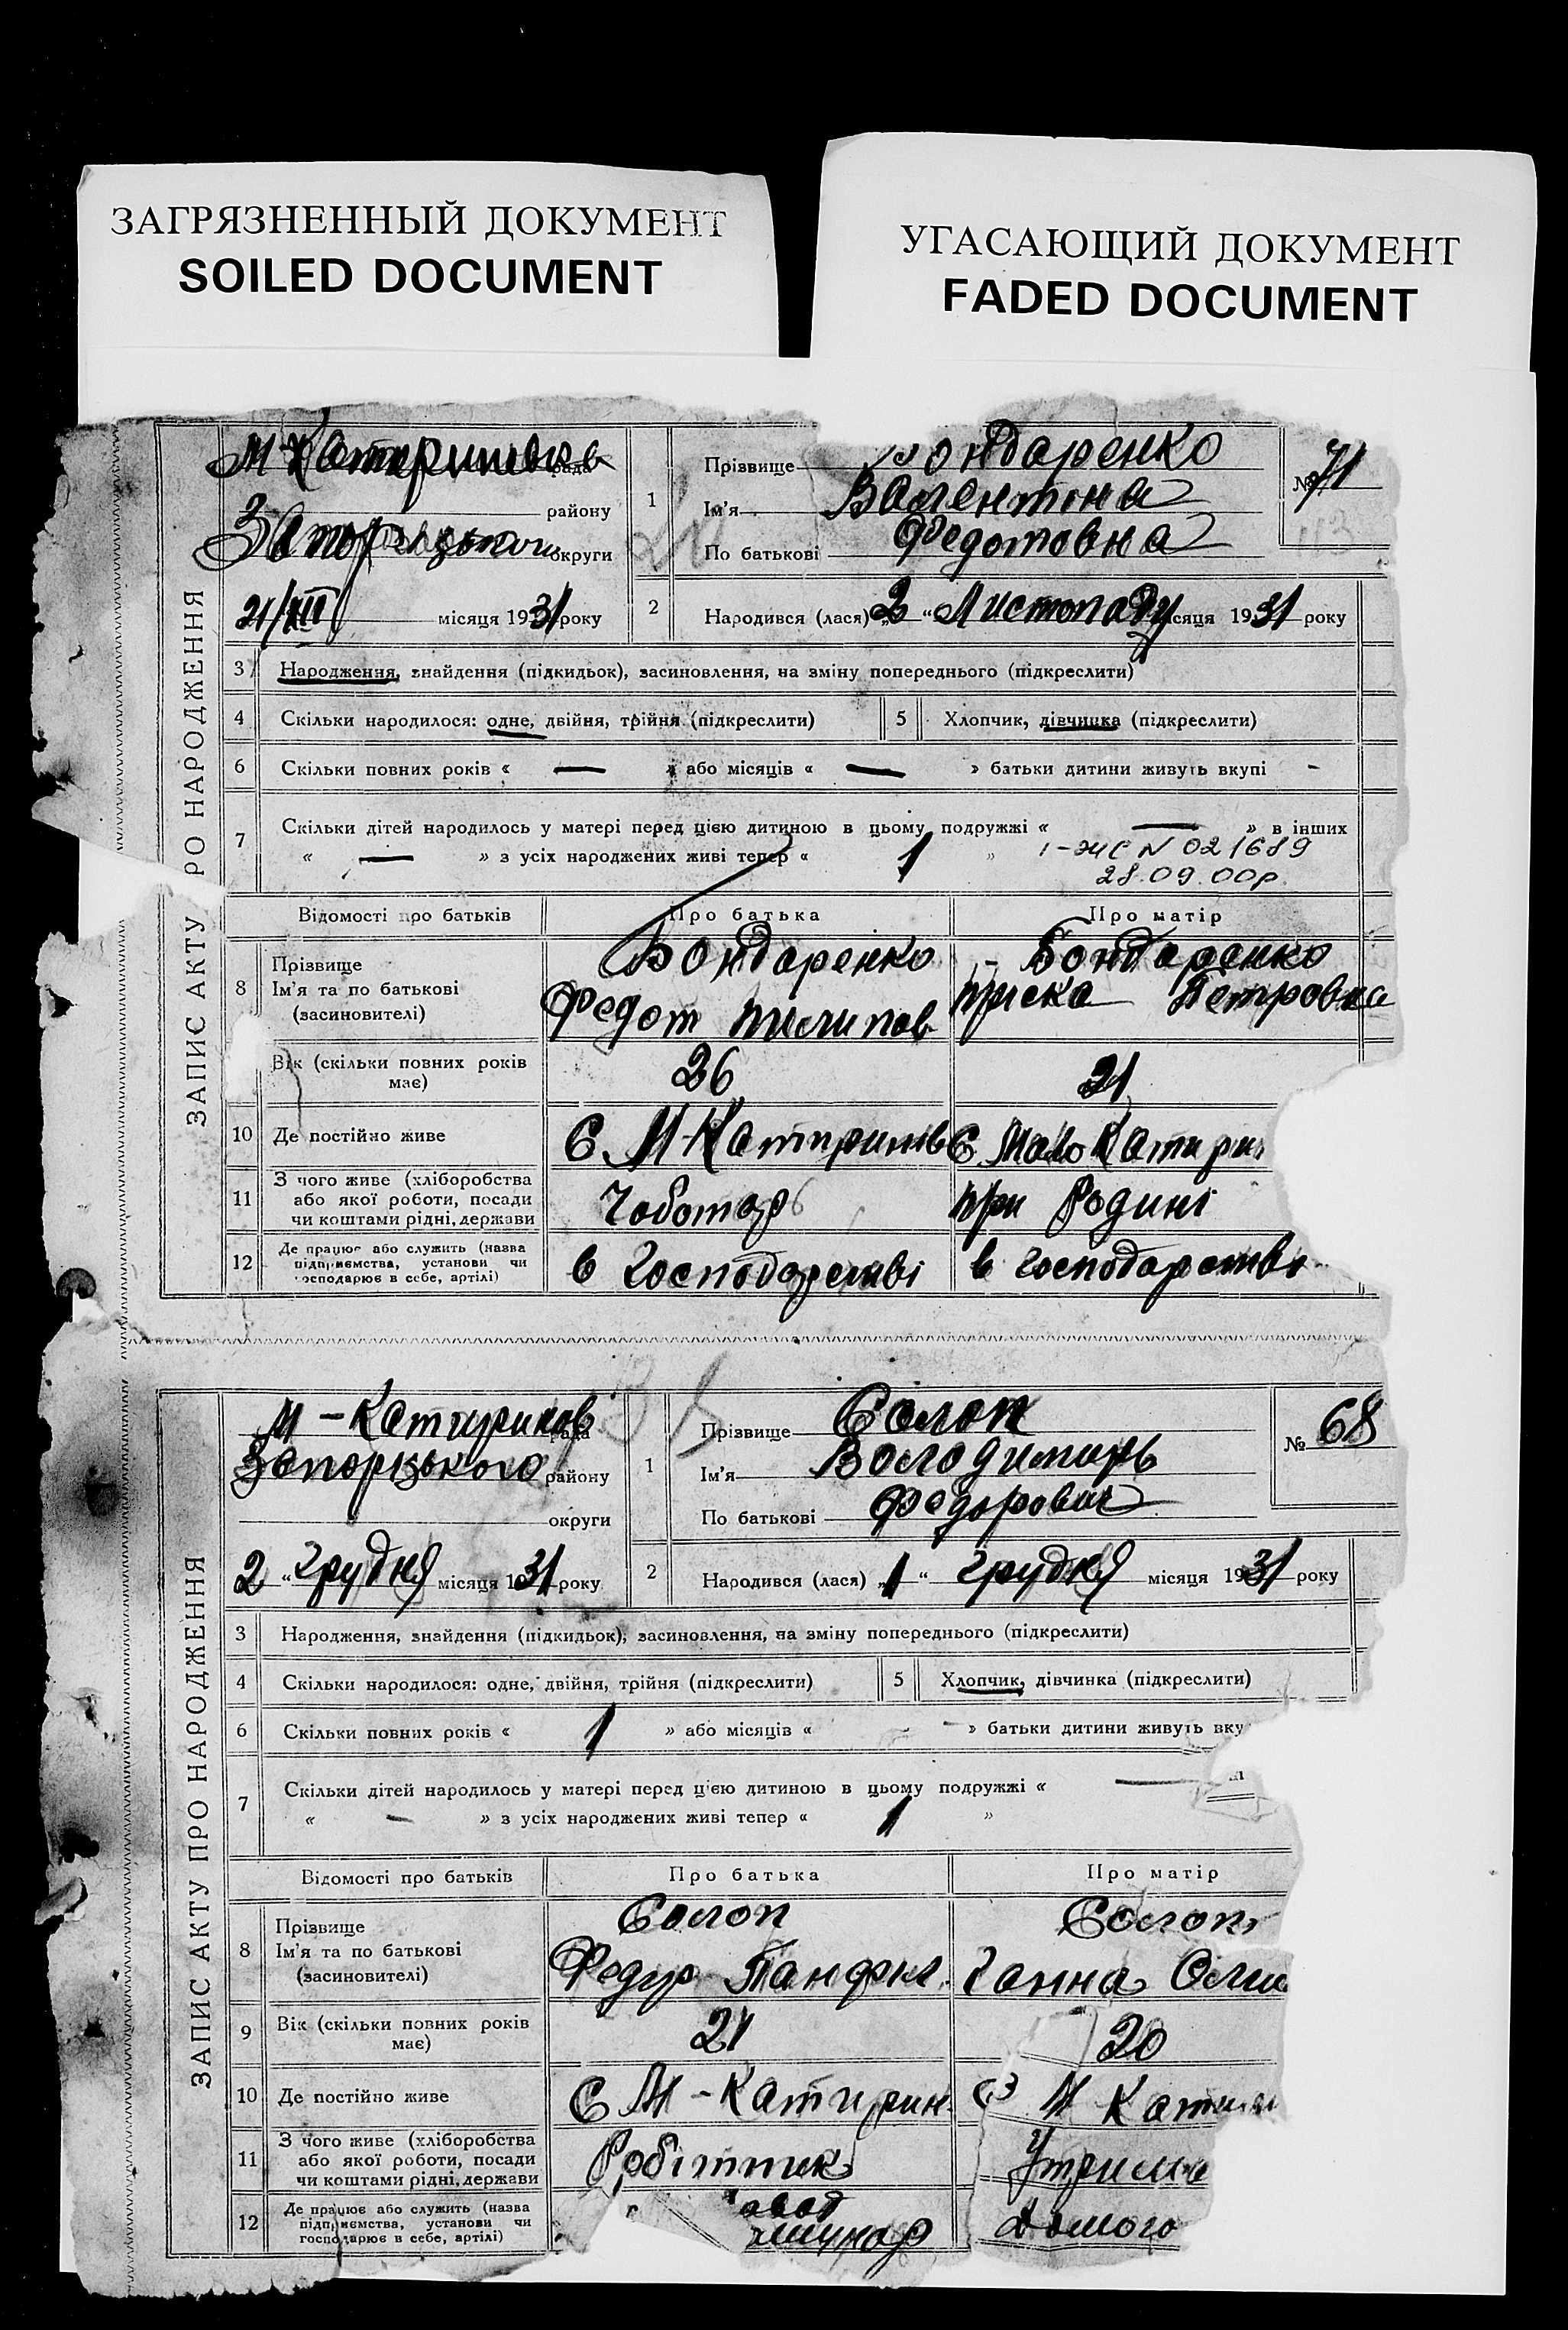 ЗАГРЯЗНЕННЫЙ ДОКУМЕНТ
SOILED DOCUMENT
УГАСАЮЩИЙ ДОКУМЕНТ
FADED DOCUMENT
РО НАРОДЖЕННЯ
ЗАПИС АКТУ
М-Катеринівка рада
району
Запорізького округи
21/XII місяця 1931 року
1
Прізвище ондаренко
Ім'я Валентина
По батькові Федотовна
№ 71
113
2
Народився (лася) „2“ Листопаду місяця 1931 року
3 Народження, знайдення (підкидьок), засиновлення, на зміну попереднього (підкреслити)
4 Скільки народилося: одне, двійня, трійня (підкреслити)
5 Хлопчик, дівчинка (підкреслити)
6 Скільки повних років « — » або місяців « — » батьки дитини живуть вкупі -
7 Скільки дітей народилось у матері перед цією дитиною в цьому подружжі « — » в інших
« — » з усіх народжених живі тепер « 1 »
N 021689
28.09.00р.
Відомості про батьків
Про батька
Про матір
8 Прізвище
Ім'я та по батькові
(засиновителі)
Бондаренко
Федот Пилипов
Бондаренко
Приска Петровна
Вік (скільки повних років
має)
26
21
10 Де постійно живе
С. М-Катиринів
С. Мало Катири
11 З чого живе (хліборобства
або якої роботи, посади
чи коштами рідні, держави
Чоботарь
при Родині
12 Де працює або служить (назва
підприємства, установи чи
господарює в себе, артілі)
в Господарстві
в господарстві
ЗАПИС АКТУ ПРО НАРОДЖЕННЯ
М-Катиринов рада
Запорізького району
округи
2 „грудня місяця 1931 року
1
Прізвище Солоп
Ім'я Володимирь
По батькові Федорович
№ 68
2
Народився (лася) „1“ грудня місяця 1931 року
3 Народження, знайдення (підкидьок), засиновлення, на зміну попереднього (підкреслити)
4 Скільки народилося: одне, двійня, трійня (підкреслити)
5 Хлопчик, дівчинка (підкреслити)
6 Скільки повних років « 1 » або місяців « — » батьки дитини живуть вку
7 Скільки дітей народилось у матері перед цією дитиною в цьому подружжі « —
« — » з усіх народжених живі тепер « 1 »
Відомості про батьків
Про батька
Про матір
8 Прізвище
Ім'я та по батькові
(засиновителі)
Солоп
Федур Панфил.
Солоп
Ганна
9 Вік (скільки повних років
має)
21
20
10 Де постійно живе
С М-Катирин.
М Кати
11 З чого живе (хліборобства
або якої роботи, посади
чи коштами рідні, держави
Робітник
Утрима
12 Де працює або служить (назва
підприємства, установи чи
господарює в себе, артілі)
авод